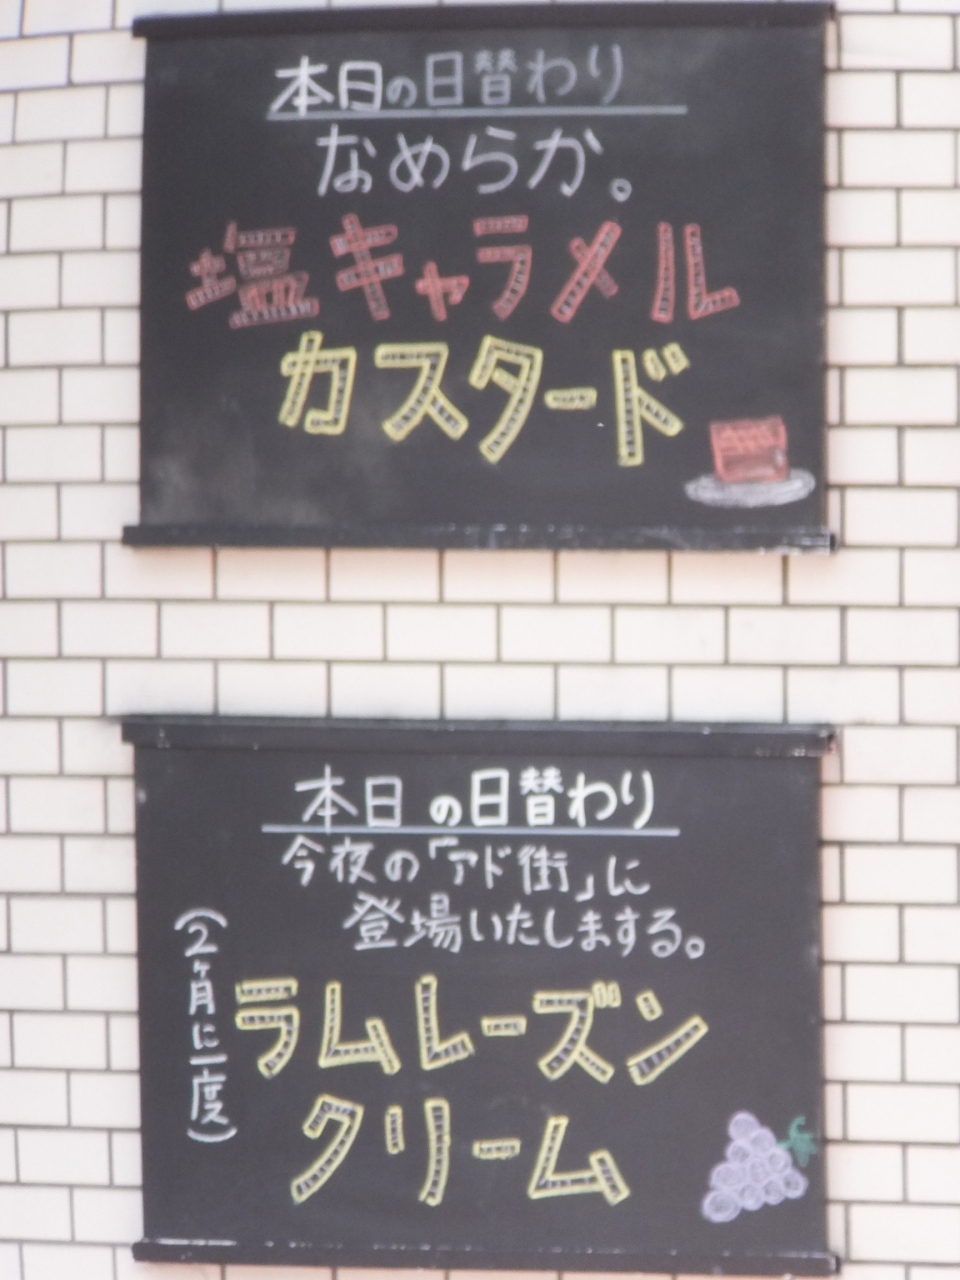 本日の日替わり
なめらか。
塩キャラメル
カスタード
本日の日替わり
今夜の「アド街」に
登場いたしまする。
(2ヶ月に一度)
ラムレーズン
クリーム